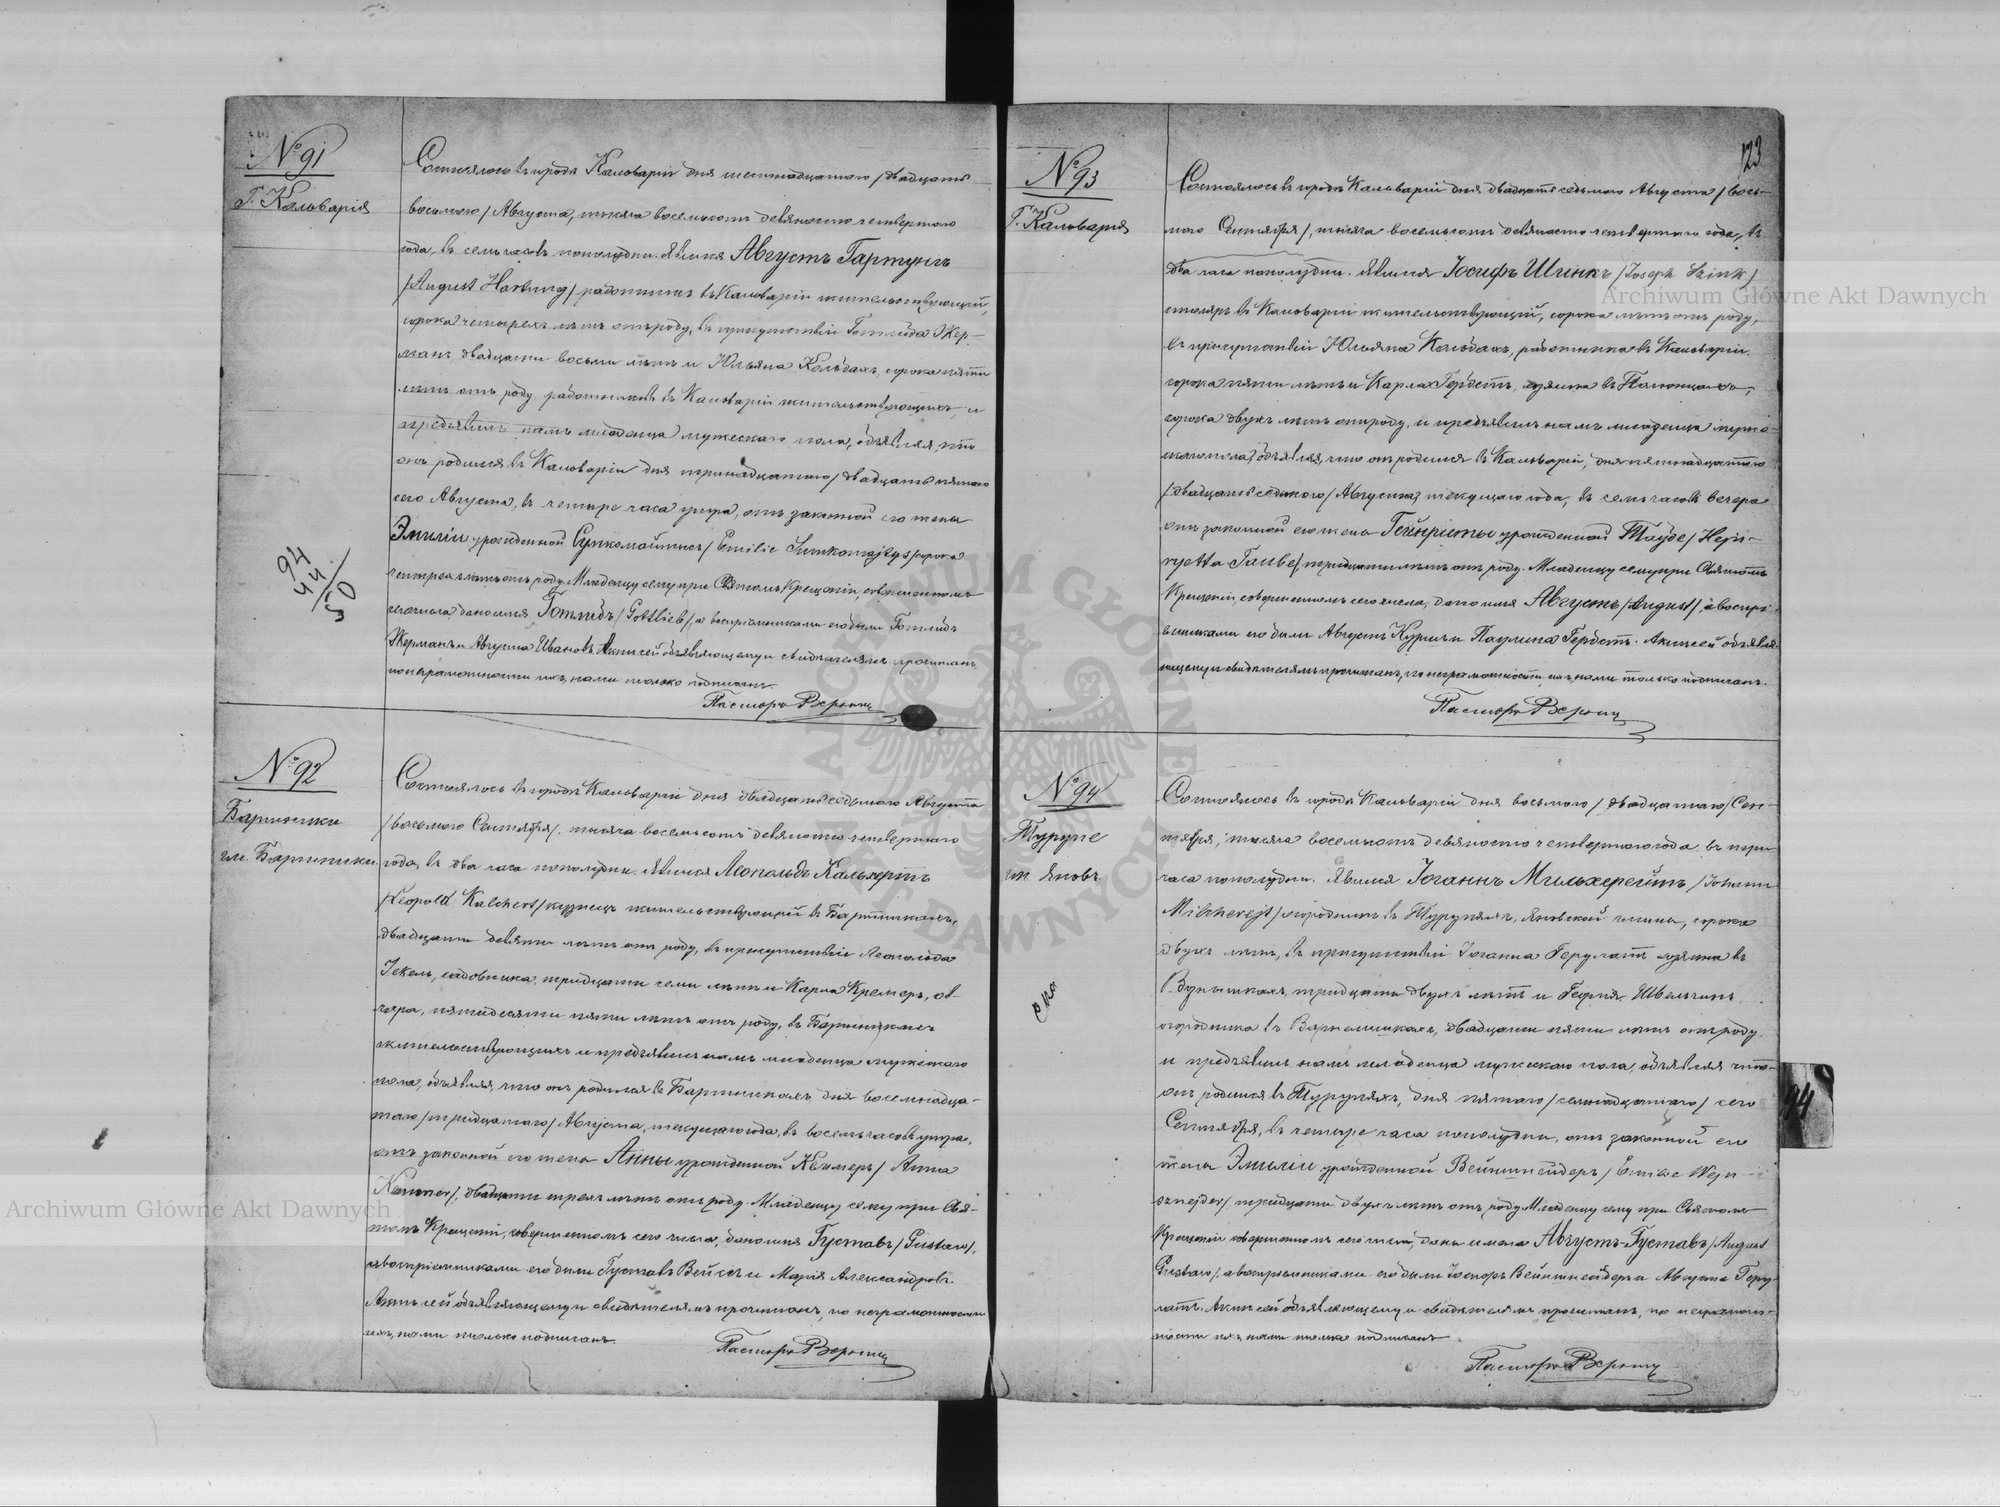 № 91
Г. Кальварія
Состоялось въ городѣ Кальваріи дня шестнадцатаго /двадцать
восьмаго/ Августа, тысяча восемьсотъ девяносто четвертаго
года, въ семь часовъ пополудни. Явился Августъ Гартунгъ
/August Hartung/ работникъ въ Кальваріи жительствующій,
сорока четырехъ лѣтъ отъ роду, въ присутствіи Готлиба Жер-
манъ, двадцати восьми лѣтъ и Юльяна Кольдахъ, сорока пяти
лѣтъ отъ роду, работниковъ въ Кальваріи жительствующихъ, и
предъявилъ намъ младенца мужескаго пола, объявляя, что
онъ родился въ Кальваріи дня тринадцатаго /двадцать пятаго
сего Августа, въ четыре часа утра, отъ законной его жены
Эмиліи урожденной Сумкомайтисъ /Emilie Sumkomajtys/ сорока
четырехъ лѣтъ отъ роду. Младенцу сему при Святомъ Крещеніи, совершенномъ
сего числа дано имя Готлибъ /Gottlieb/, а воспріемниками его были Готлибъ
Жерманъ и Августа Ивановъ. Актъ сей объявляющему и свидѣтелямъ прочитанъ,
по неграмотности ихъ, нами только подписанъ.
Пасторъ
94
44/
50
№ 92
Бартники
гм. Бартники
Состоялось въ городѣ Кальваріи дня двадцать седьмаго Августа
/восьмаго Сентября/, тысяча восемьсотъ девяносто четвертаго
года, въ два часа пополудни. Явился Леопольдъ Кальхертъ
/Leopold Kalchert/ кузнецъ жительствующій въ Бартникахъ,
двадцати девяти лѣтъ отъ роду, въ присутствіи Леопольда
Іекель, садовника, тридцати семи лѣтъ и Карла Кремеръ, ов-
чара, пятидесяти пяти лѣтъ отъ роду, въ Бартникахъ
жительствующихъ и предъявилъ намъ младенца мужескаго
пола, объявляя, что онъ родился въ Бартникахъ, дня восемнадца-
таго /тридцатаго/ Августа, текущаго года, въ восемь часовъ утра,
отъ законной его жены Анны урожденной Кеммеръ /Anna
Kemmer/, двадцати трехъ лѣтъ отъ роду. Младенцу сему при Свя-
томъ Крещеніи, совершенномъ сего числа, дано имя Густавъ /Gustaw/,
а воспріемниками его были Густавъ Вейсъ и Марія Александровъ.
Актъ сей объявляющему и свидѣтелямъ прочитанъ, по неграмотности
ихъ, нами только подписанъ.
Пасторъ
123
№ 93
Г. Кальварія
Состоялось въ городѣ Кальваріи дня двадцать седьмаго Августа /вось-
маго Сентября/, тысяча восемьсотъ девяносто четвертаго года, въ
два часа пополудни. Явился Іосифъ Шинкъ /Joseph Szink/
столяръ въ Кальваріи жительствующій, сорока лѣтъ отъ роду,
въ присутствіи Юльяна Кольдахъ, работника въ Кальваріи
сорока пяти лѣтъ и Карла Гербстъ, хозяина въ
сорока двухъ лѣтъ отъ роду, и предъявилъ намъ младенца муже-
скаго пола, объявляя, что онъ родился въ Кальваріи, дня пятнадцатаго
/двадцать седьмаго/ Августа, текущаго года, въ семь часовъ вечера
отъ законной его жены Гейнріэты урожденной Таубе /Hejn-
rjetta Taube/, тридцати лѣтъ отъ роду. Младенцу сему при Святомъ
Крещеніи, совершенномъ сего числа, дано имя Августъ /August/, а воспрі-
емниками его были Августъ и Паулина Гербстъ. Актъ сей объявля-
ющему и свидѣтелямъ прочитанъ, по неграмотности ихъ, нами только подписанъ.
Пасторъ
№ 94
Турупе
гм. Яновъ
Состоялось въ городѣ Кальваріи дня восьмаго /двадцатаго/ Сен-
тября, тысяча восемьсотъ девяносто четвертаго года, въ три
часа пополудни. Явился Іоганнъ Мильхерейтъ /Johann
Milcherejt/ огородникъ въ Турупяхъ, Яновской гмины, сорока
двухъ лѣтъ, въ присутствіи Іоганна Герулатъ хозяина въ
тридцати двухъ лѣтъ и Георга
огородника въ двадцати пяти лѣтъ отъ роду,
и предъявилъ намъ младенца мужескаго пола, объявляя что
онъ родился въ Турупяхъ, дня пятаго /семнадцатаго/ сего
Сентября, въ четыре часа пополудни, отъ законной его
жены Эмиліи урожденной Вейншнейдеръ /Emilie Wejn-
sznejder/, тридцати двухъ лѣтъ отъ роду. Младенцу сему при Святомъ
Крещеніи совершенномъ сего числа, даны имена Августъ-Густавъ /August
Gustaw/, а воспріемниками его были Іосифъ Вейншнейдеръ и Августа Геру-
латъ. Актъ сей объявляющему и свидѣтелямъ прочитанъ, по неграмот-
ности ихъ, нами только подписанъ
Пасторъ
94
Archiwum Główne Akt Dawnych
Archiwum Główne Akt Dawnych
ARCHIWUM GŁÓWNE AKT DAWNYCH